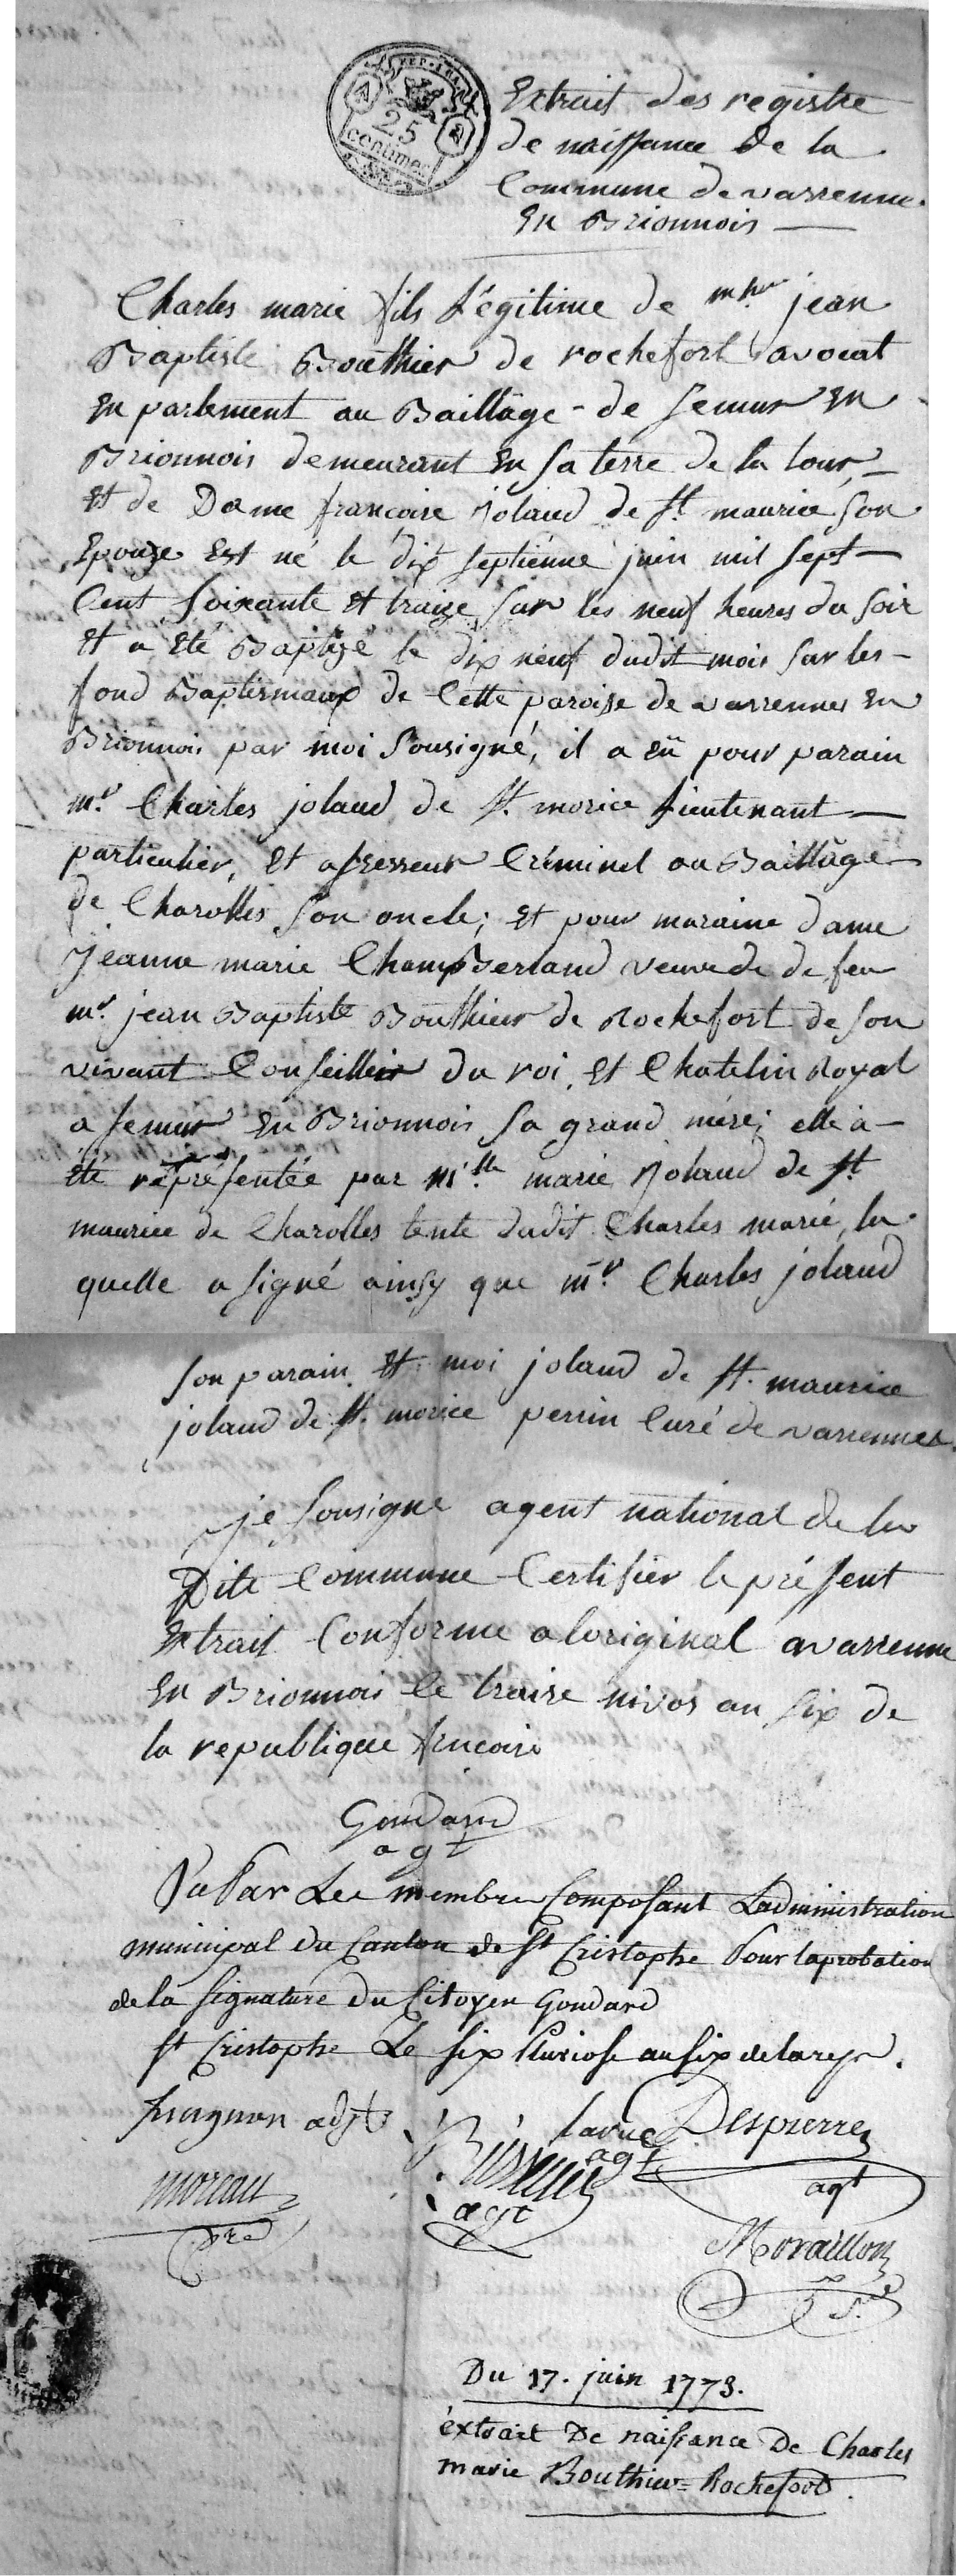 REP. FRA.
25
centimes
Extrait des registre
de naissance de la
Commune de varenne
En Brionnois
Charles marie fils Légitime de mr jean
Baptiste Bouthier de rochefort avocat
en parlement au Baillâge de Semur en
Brionnois demeurant en sa terre de la tour,
et de Dame françoise jolaud de St maurice son
Epouze est né le dix septiénne juin mil sept
Cent soixante et traize sur les neuf heures du soir
et a été Baptizé le dix neuf dudit mois sur les
fond Baptismaux de Cette paroise de varennes en
Brionnois par moi sousigné, il a eü pour parain
mr Charles jolaud de St. morice lieutenant
particulier, et assesseur Créminel au Baillâge
de Charolles son oncle; et pour maraine dame
Jeanne marie Champserland veuve de de feu
mr. jean Baptiste Bouthier de Rochefort de son
vivant Conseillier du roi, et Chatelin Royal
a semur en Brionnois sa grand mére; elle à
été représentée par mlle marie Jolaud de St
maurice de Charolles tente dudit Charles marie, la
quelle a signé ainsy que mr. Charles jolaud
son parain et moi jolaud de St. maurice
jolaud de St. morice perrin Curé de varennes.
je sousigne agent national de la
Dite Commune Certifier le présent
Extrait Conforme a loriginal a varenne
En Brionnois le traise nivos an six de
la republique francoise
Gondard
agt
Vu Par Les membres Composant Ladministration
municipal du Canton de St Cristophe Pour laprobation
de la signature du Citoyen Gondard
St Cristophe Le six Pluviose an six de la rep.
adjt
larue Despierre
agt
agt
moreau
agt
pre
Moraillon
Du 17. juin 1773.
éxtrait De naissance De Charles
marie Bouthier = Rochefort.